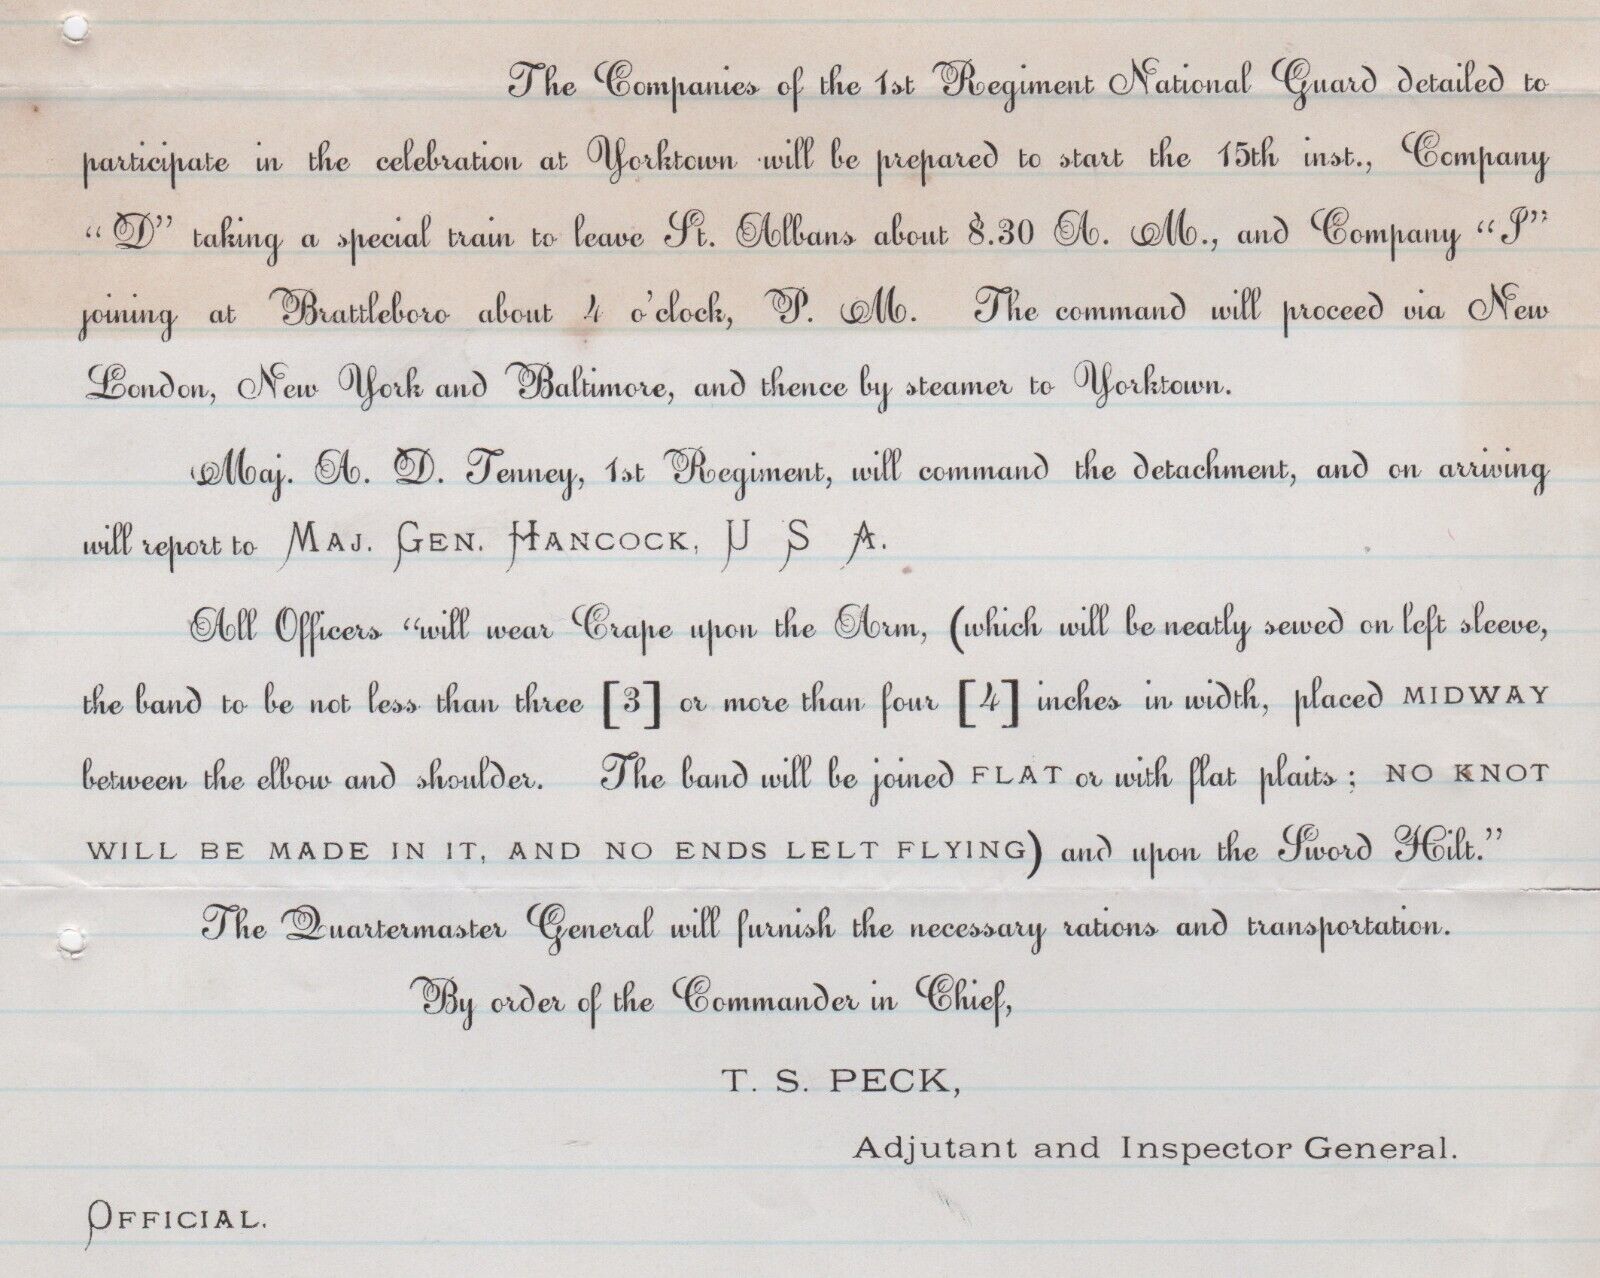 The Companies of the 1st Regiment National Guard detailed to
participate in the celebration at Yorktown will be prepared to start the 15th inst., Company
“D” taking a special train to leave St. Albans about 8.30 A. M., and Company “I”
joining at Brattleboro about 4 o'clock, P. M. The command will proceed via New
London, New York and Baltimore, and thence by steamer to Yorktown.
Maj. A. D. Tenney, 1st Regiment, will command the detachment, and on arriving
will report to MAJ. GEN. HANCOCK, U S A.
All Officers “will wear Crape upon the Arm, (which will be neatly sewed on left sleeve,
the band to be not less than three [3] or more than four [4] inches in width, placed MIDWAY
between the elbow and shoulder. The band will be joined FLAT or with flat plaits; NO KNOT
WILL BE MADE IN IT, AND NO ENDS LELT FLYING) and upon the Sword Hilt.”
The Quartermaster General will furnish the necessary rations and transportation.
By order of the Commander in Chief,
T. S. PECK,
Adjutant and Inspector General.
OFFICIAL.